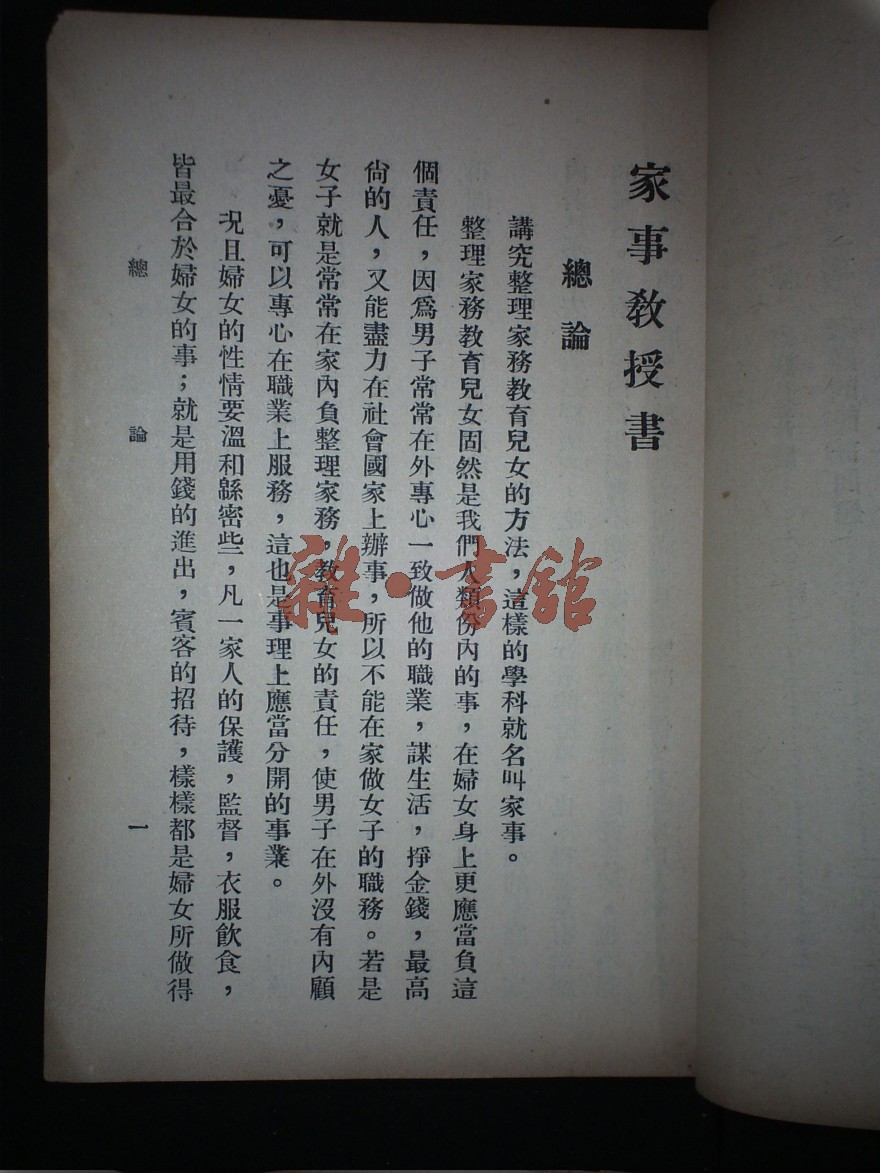 家事教授書
總論
講究整理家務教育兒女的方法，這樣的學科就名叫家事。
整理家務教育兒女固然是我們人類份內的事，在婦女身上更應當負這
個責任，因爲男子常常在外專心一致做他的職業，謀生活，掙金錢，最高
尙的人，又能盡力在社會國家上辦事，所以不能在家做女子的職務。若是
女子就是常常在家內負整理家務，教育兒女的責任，使男子在外沒有內顧
之憂，可以專心在職業上服務，這也是事理上應當分開的事業。
况且婦女的性情要溫和緜密些，凡一家人的保護，監督，衣服飲食，
皆最合於婦女的事；就是用錢的進出，賓客的招待，樣樣都是婦女所做得
總論 一
雜·書館